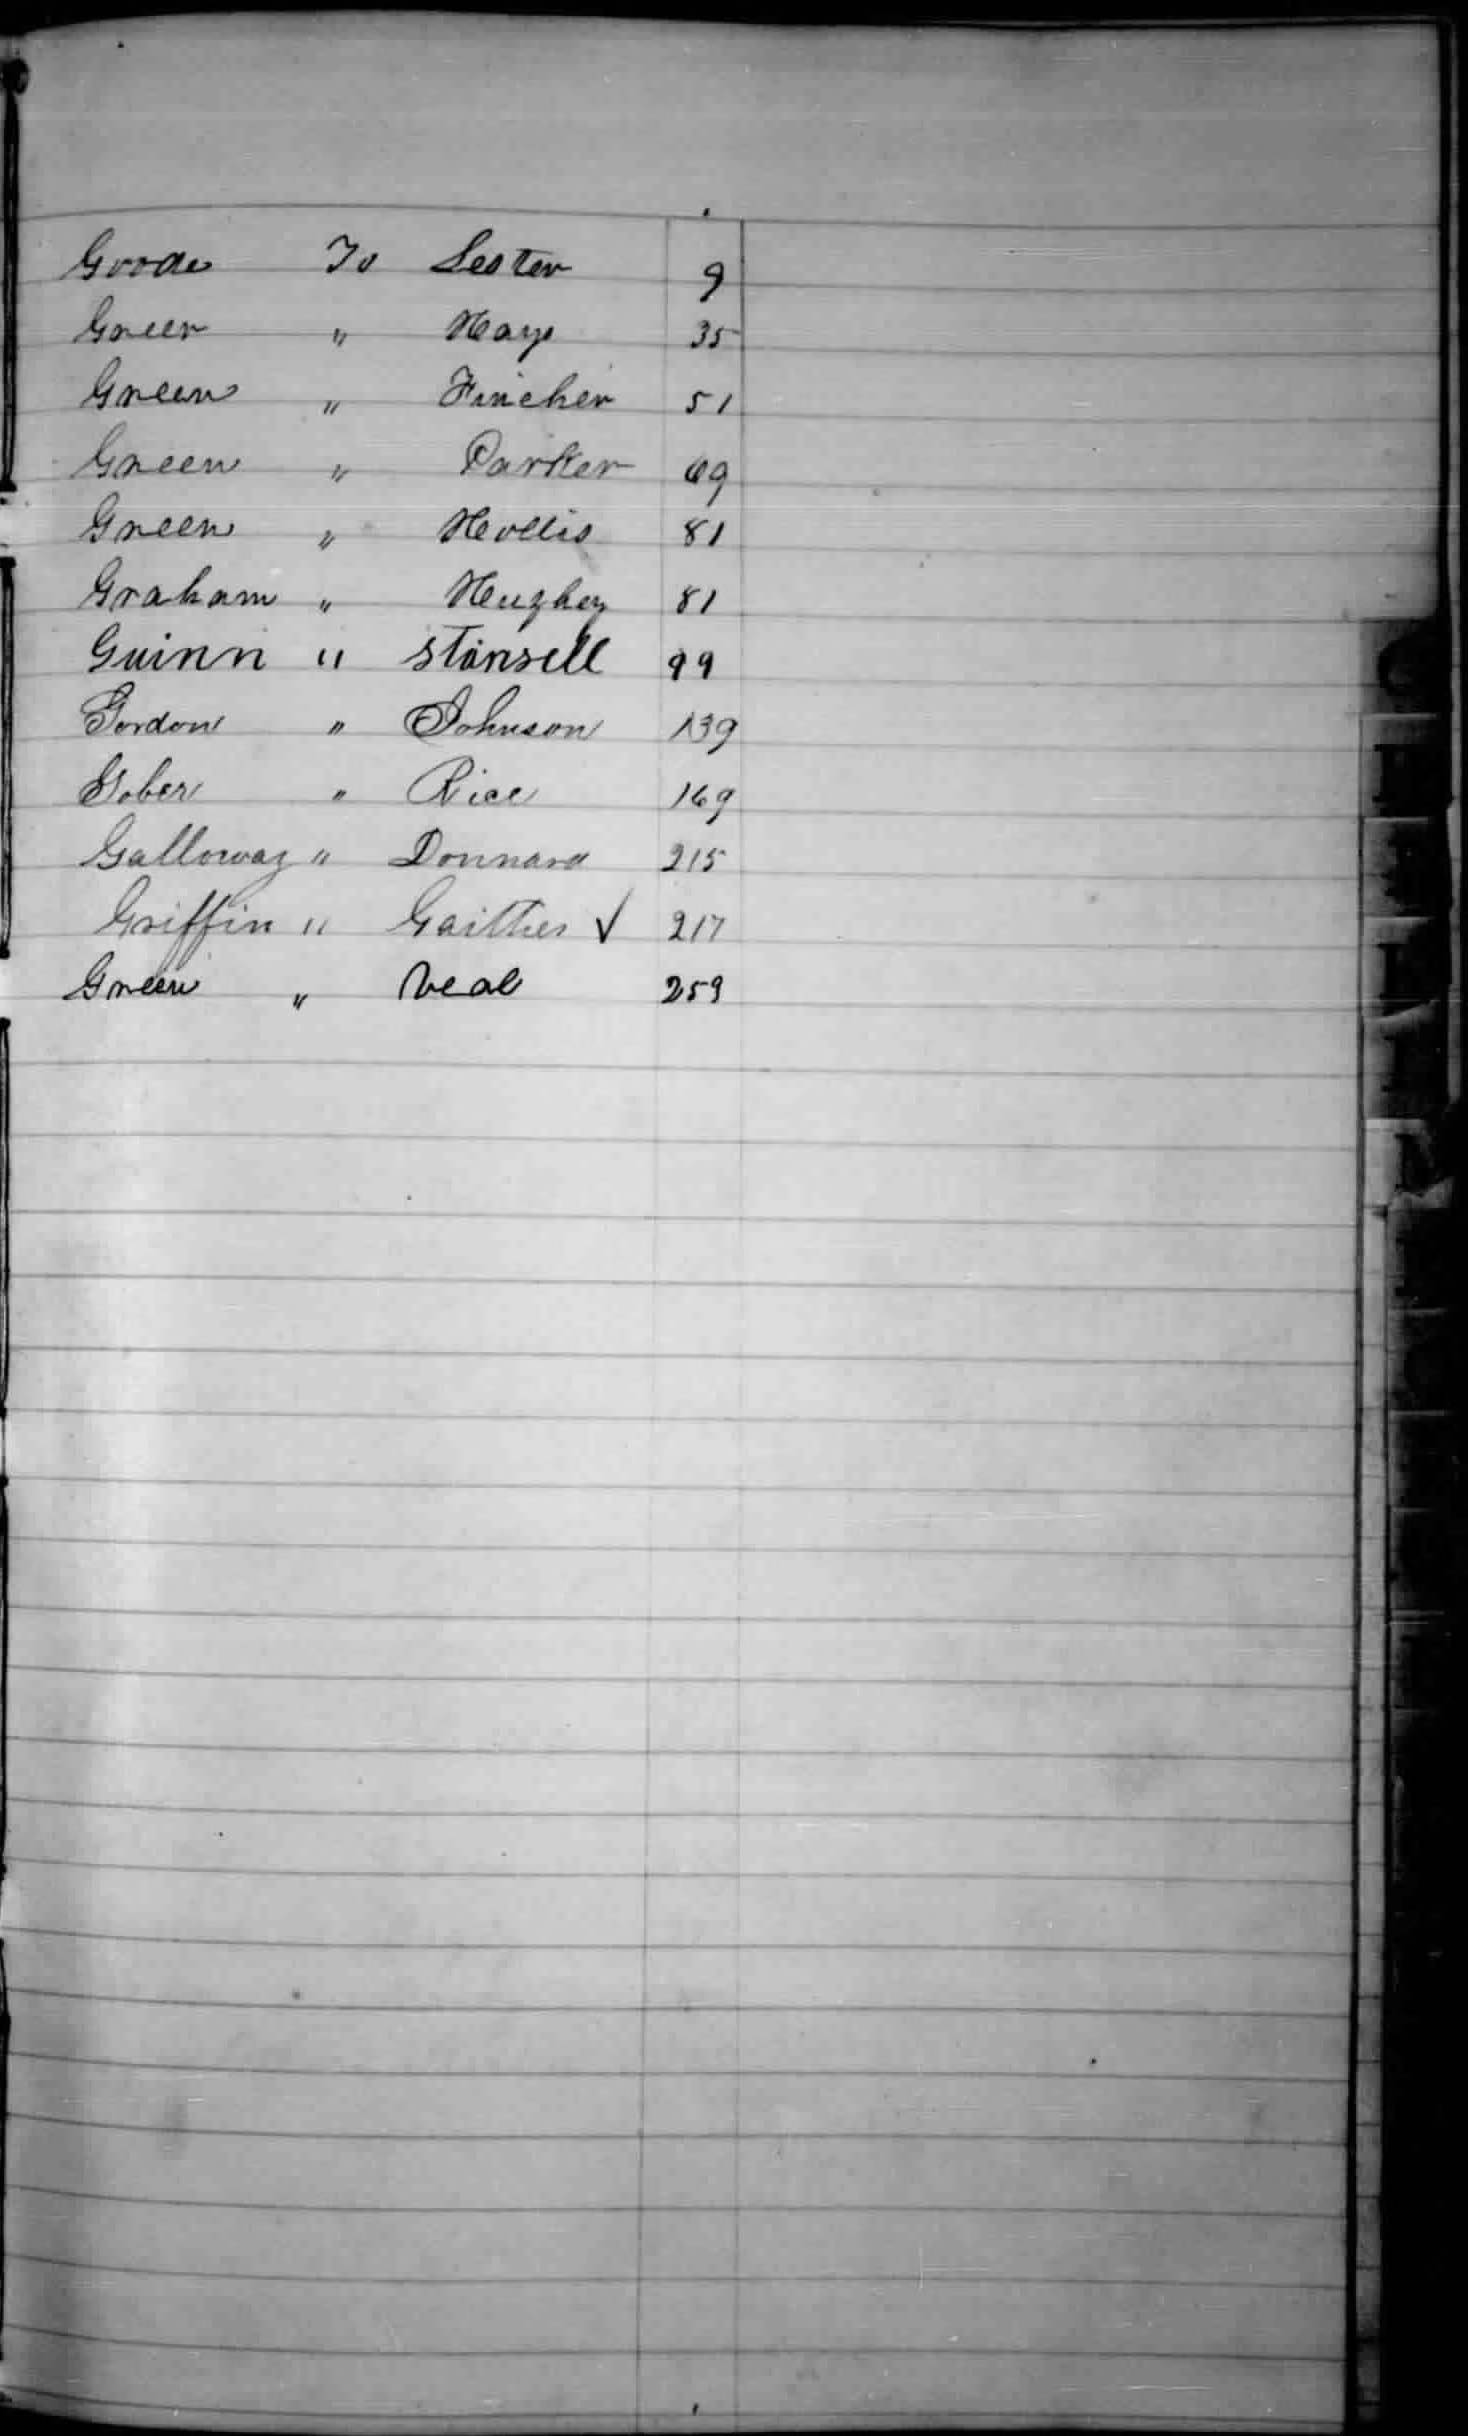 Goode To Lester 9
Greer " Hays 35
Green " Fincher 51
Green " Parker 69
Green " Hollis 81
Graham " Hughey 81
Guinn " Stansell 99
Gordon " Johnson 139
Gober " Rice 169
Galloway " Donnard 215
Griffin " Gaither ✓ 217
Green " Veal 259